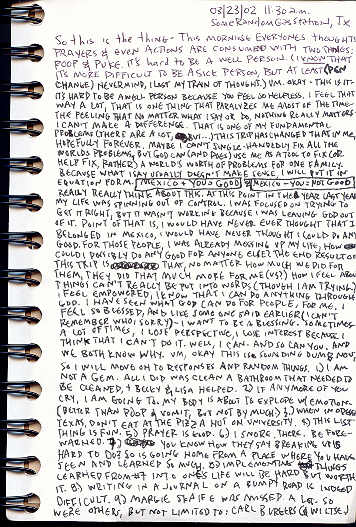 03/23/02 11:30 a.m.
Some Random Gas Station, Tx
So this is the thing - This morning everyones thoughts
prayers & even actions are consumed with two things:
poop & puke. It's hard to be a well person. (I know that
its more difficult to be a sick person, but at least (pen
change) nevermind, I lost my train of thought). Um, okay - this is it -
its hard to be a well person because you feel so helpless. I feel that
way a lot, that is one thing that paralyzes me most of the time -
the feeling that no matter what I say or do, nothing really matters.
I can't make a difference. That is one of my fundamental
problems (there are a lot, but...) this trip has changed that in me,
hopefully forever. Maybe I can't single-handedly fix all the
worlds problems, but God can (and does) use me as a tool to fix (or
help fix, rather) a worlds worth of problems for one family.
Because what I say usually doesn't make sense, I will put it in
equation form: Mexico + you = good & Mexico - you = not good
Really really think about this. At this point in the year last year
my life was spinning out of control. I was focused on trying to
get it right, but it wasn't working because I was leaving God out
of it. Point of that is, I would have never ever thought that I
belonged in Mexico, I would have never thought I could do any
good. For those people, I was already messing up my life, how
could I possibly do any good for anyone else? The end result of
this trip is that, no matter how much we did for
them, they did that much more for me (us?) How I feel about
things can't really be put into words (though I am trying)
I feel empowered, I know that I can do anything through
God. I have seen what God can do for people, for me, I
feel so blessed, and like someone said earlier (I can't
remember who, sorry) - I want to be a blessing. Sometimes
A lot of times, I lose perspective, I lose interest because I
think that I can't do it. Well, I can. And so can you, and
we both know why. Um, okay this is sounding dumb now,
so I will move on to responses and random things. 1.) I am
not a gem. All I did was clean a bathroom that needed to
be cleaned, & Becky & Lisa helped. 2.) If anymore of you
cry, I am going to. My body is about to explode w/ emotion.
(Better than poop & vomit, but not by much) 3.) When in Odessa
Texas, don't eat at the Pizza Hut on University. 4.) This list
thing is fun. 5.) Prayer is good. 6.) I snore. There. Be fore-
warned. 7.) You know how they say breaking up is
hard to do? So is going home from a place where you have
seen and learned so much. 8.) Implementing things
learned from #7 into ones life will be hard but worth
it. 8.) Writing in a journal on a bumpy road is indeed
difficult. 9.) Margie Skaife was missed. A lot. So
were others, but not limited to: Carl Burgers (@ Wiltse)